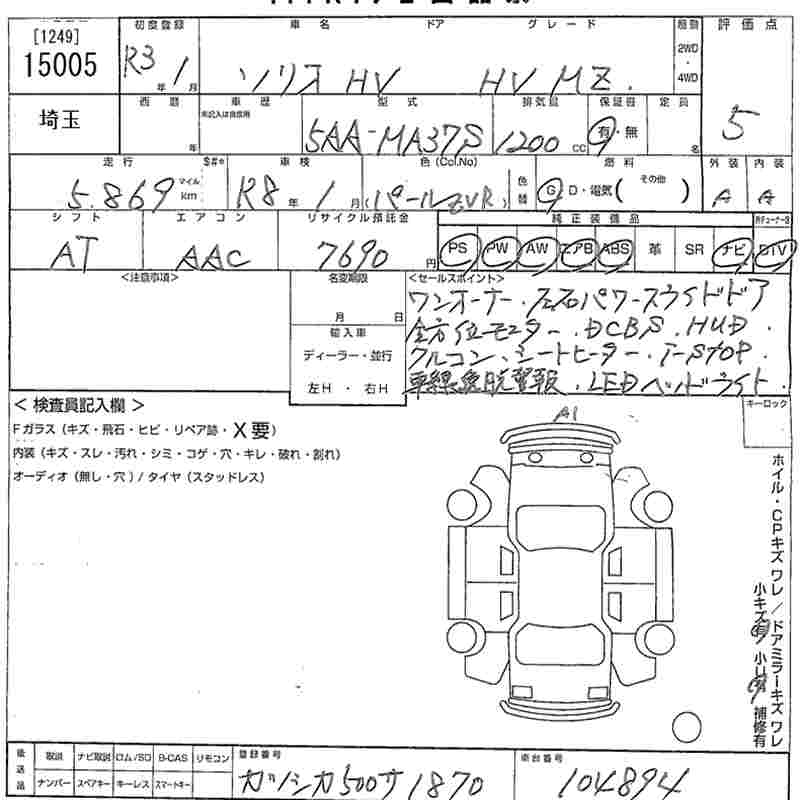 [1249] 初度登録 車名 ドア グレード 駆動 評価点
15005 R3年 1月 ソリオ HV HV MZ. 2WD・4WD 5
埼玉 西暦 年 車歴 未記入は自家用 型式 排気量 保証書 定員
5AA-MA37S 1200cc 有・無 名
走行 $#* 車検 色(Col.No) 燃料 外装 内装
5.869 マイル km R8年 1月 (パール ZVR) 色替 G D・電気( その他 ) A A
シフト エアコン リサイクル預託金 純正装備品
AT AAC 7690円 PS PW AW エアB ABS 革 SR ナビ DTV
<注意事項> 名変期限 <セールスポイント>
月 日 ワンオーナー・左右パワースライドドア
輸入車 全方位モニター・DCBS.HUD.
ディーラー・並行 クルコン、シートヒーター・I-STOP.
左H・右H 車線逸脱警報.LEDヘッドライト.
<検査員記入欄> A1 キーロック
Fガラス(キズ・飛石・ヒビ・リペア跡・X要)
内装(キズ・スレ・汚れ・シミ・コゲ・穴・キレ・破れ・割れ)
オーディオ(無し・穴)/タイヤ(スタッドレス)
ホイル・CPキズ ワレ/ドアミラーキズ ワレ
小キズ有 小U有 補修有
後送品 取説 ナビ取説 ロム/SD B-CAS リモコン 登録番号 車台番号
ナンバー スペアキー キーレス スマートキー 500サ1870 104894